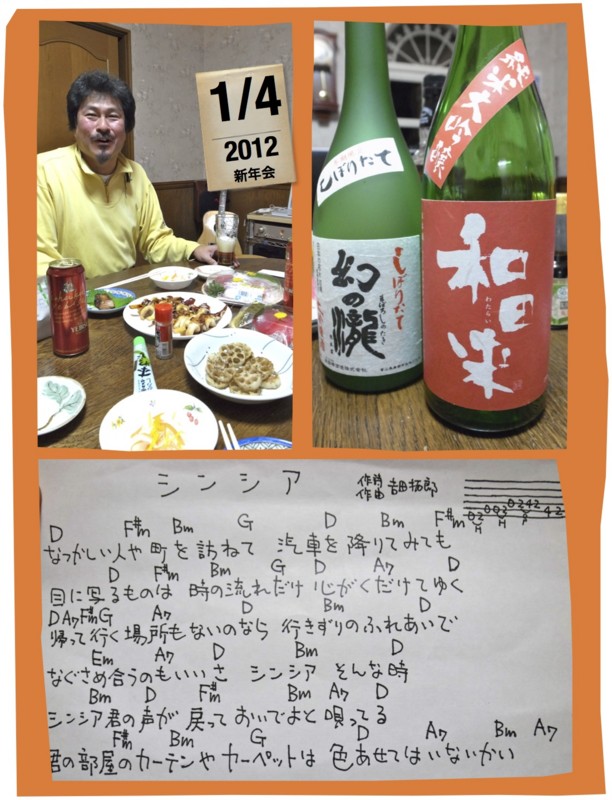 1/4
2012
新年会
純米大吟醸
しぼりたて
しぼりたて
幻の瀧
まぼろしのたき
和田来
わたらい
シンシア
作詩
作曲 吉田拓郎
D F#m Bm G D Bm F#m
なつかしい人や町を訪ねて 汽車を降りてみても
D F#m Bm G D A7 D
目に写るものは 時の流れだけ 心がくだけてゆく
D A7 F#m G A7 D Bm D
帰って行く場所もないのなら 行きずりのふれあいで
Em A7 D Bm D
なぐさめ合うのもいいさ シンシア そんな時
Bm D F#m Bm A7 D
シンシア君の声が 戻っておいでよと 唄ってる
F#m Bm G D A7 Bm A7
君の部屋のカーテンや カーペットは 色あせてはいないかい